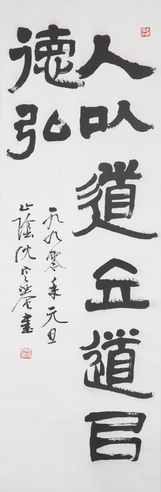 人以道立道以
德弘
一九九零年元旦
山陰沈定菴書